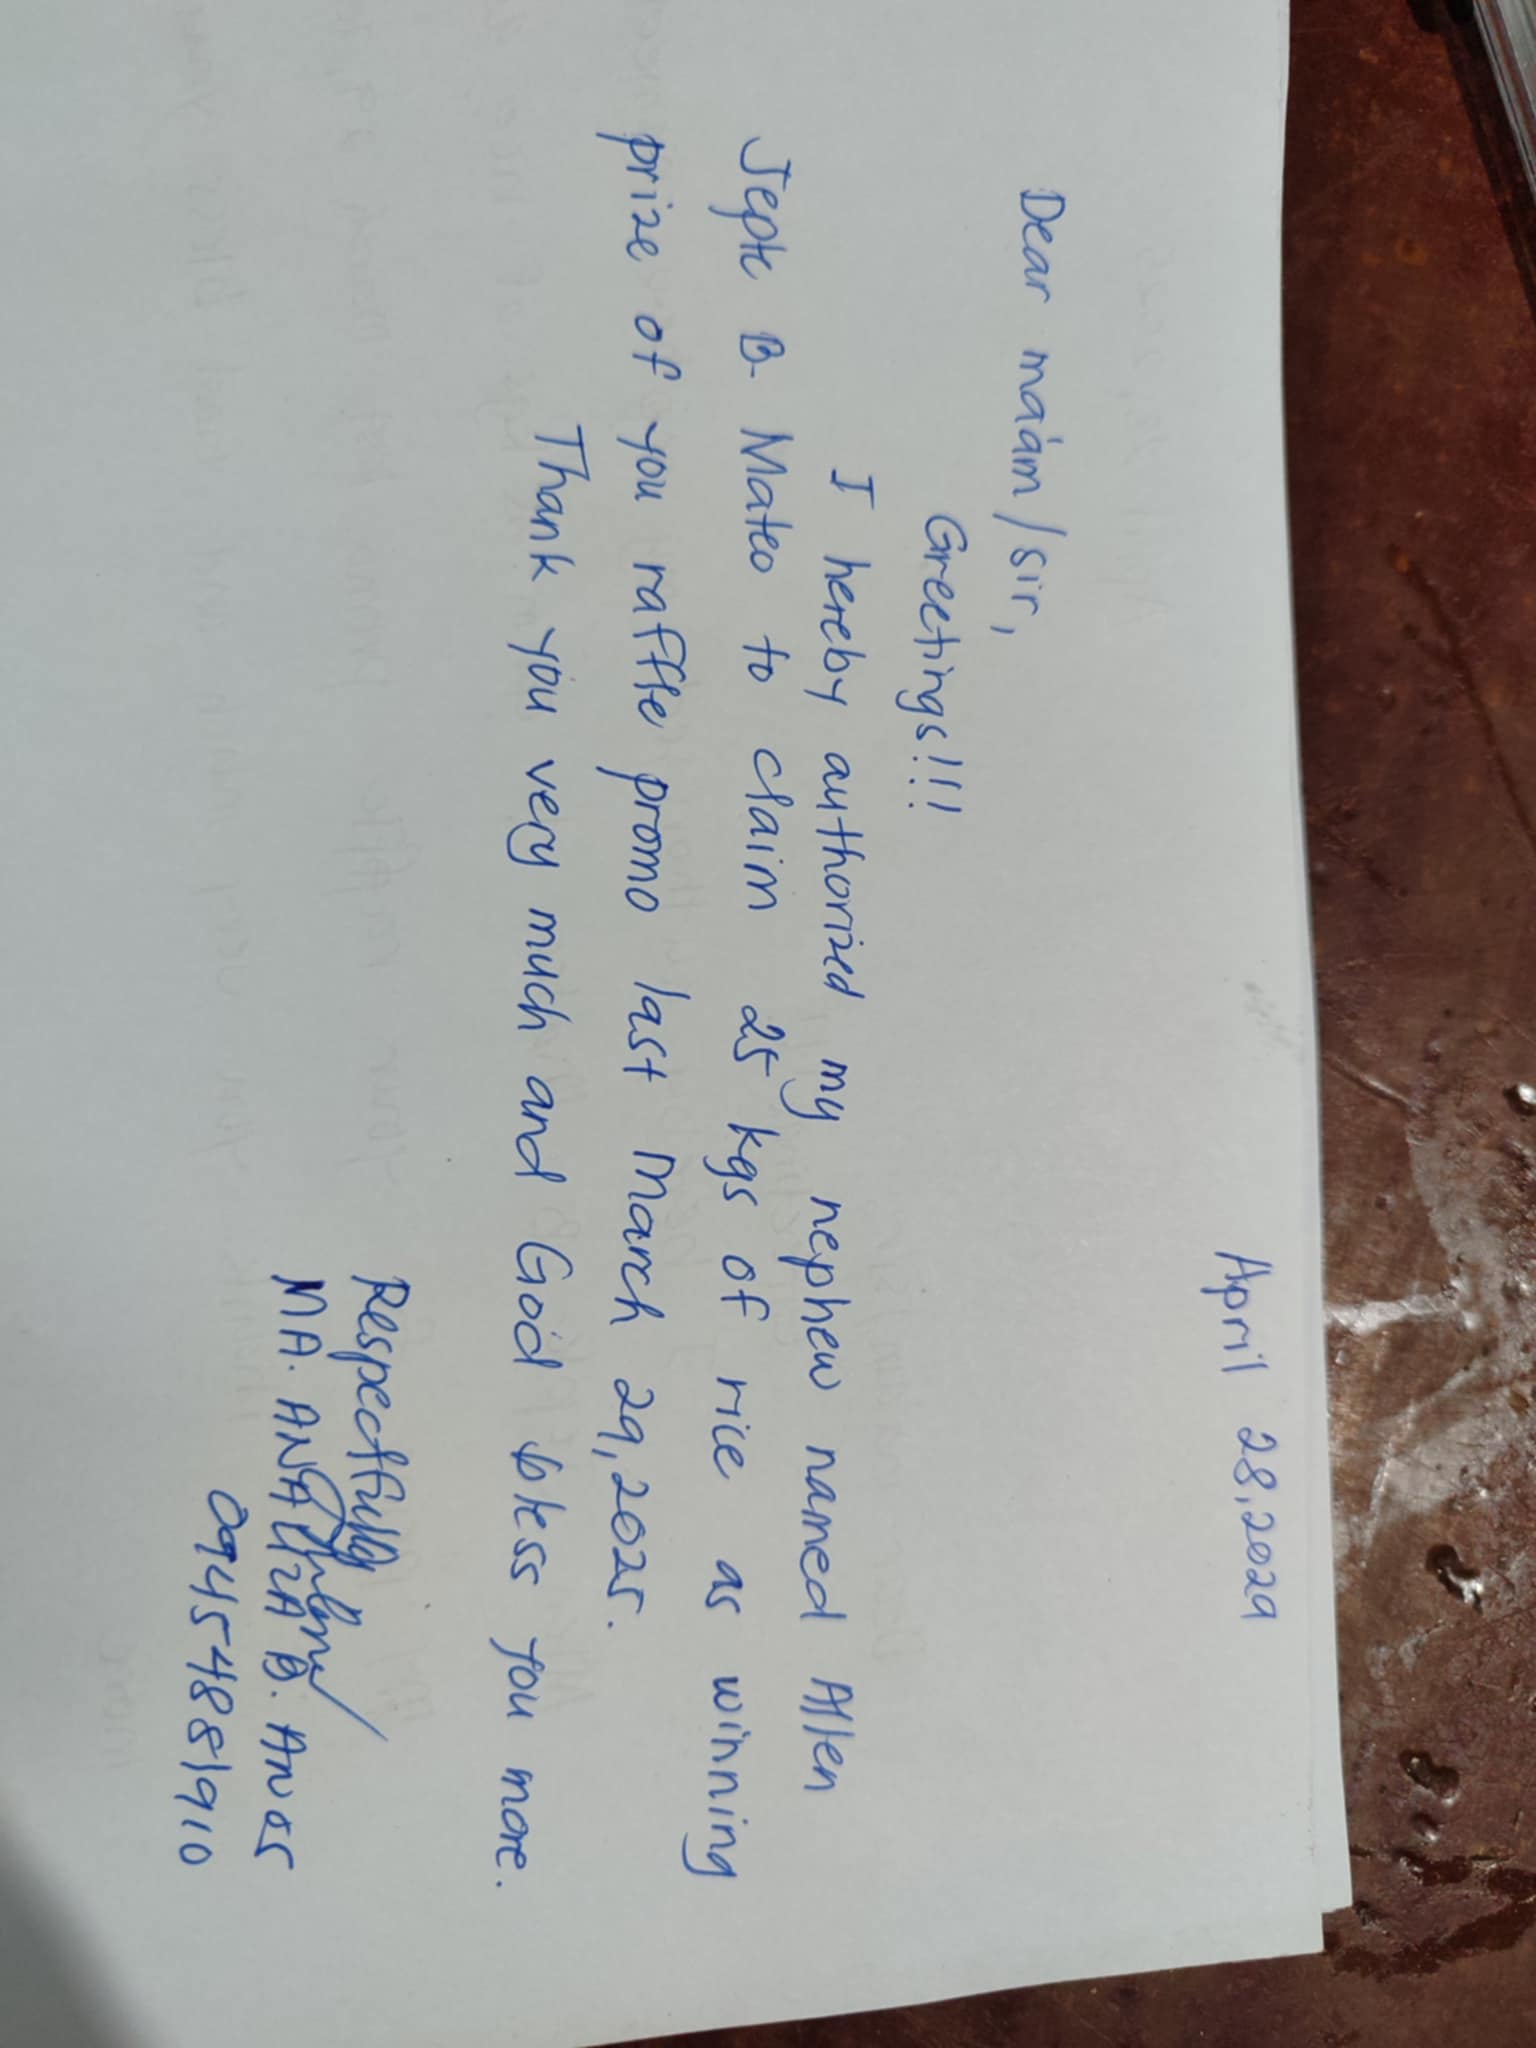 April 28,2029
Dear ma'am/sir,
Greetings!!!
I hereby authorized my nephew named Allen
Jepte B. Mateo to claim 25 kgs of rice as winning
prize of you raffle promo last March 29,2025.
Thank you very much and God bless you more.
Respectfully
MA. ANALIZA B. ANOS
09454881910